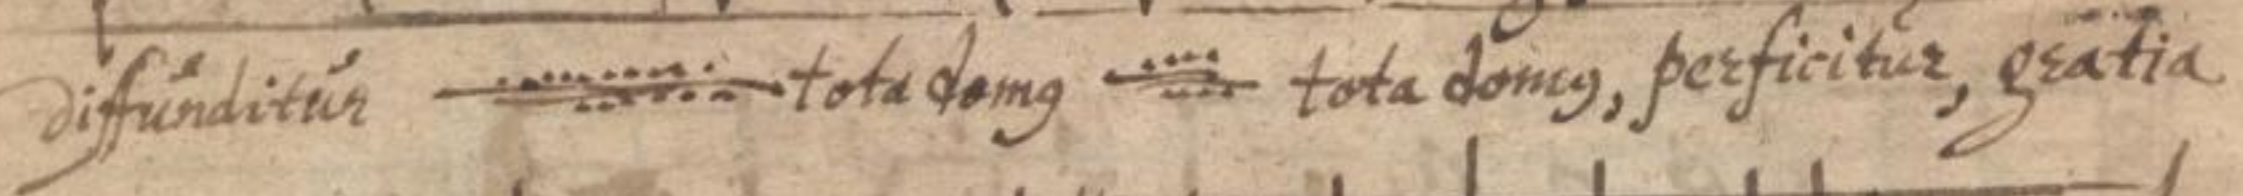 diffunditur tota domꝰ tota domꝰ, perficitur, gratia